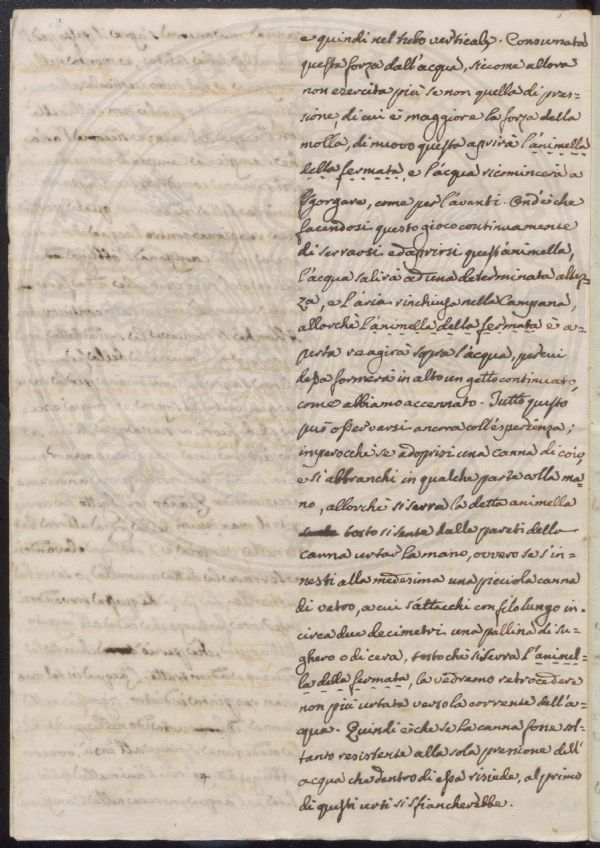 e quindi nel tubo verticale. Consumata
questa forza dall'acqua, siccome allora
non esercita più se non quella di pres=
sione di cui è maggiore la forza della
molla, di nuovo questa aprirà l'animella
della fermata, e l'acqua ricomincerà a
sgorgare, come per l'avanti. Ond'è che
facendosi questo gioco continuamente
di serrarsi ed aprirsi quest'animella,
l'acqua salirà ad una determinata altez=
za, e l'aria rinchiusa nella Campana,
allorchè l'animella della fermata è a=
perta reagirà sopra l'acqua, per cui
essa formerà in alto un getto continuato,
come abbiamo accennato. Tutto questo
può osservarsi ancora coll'esperienza;
imperocchè se adoprisi una canna di coio,
e si abbranchi in qualche parte colla ma=
no, allorchè si serra la detta animella
tosto si sente dalle pareti della
canna urtar la mano, ovvero se s'in=
nesti alla medesima una picciola canna
di vetro, a cui s'attacchi con filo lungo in=
circa due decimetri una pallina di su=
ghero o di cera, tosto che si serra l'animel=
la della fermata, la vedremo retrocedere
non più urtata verso la corrente dell'a=
qua. Quindi è che se la canna fosse sol=
tanto resistente alla sola pressione dell'
acqua che dentro di essa risiede, al primo
di questi urti si sfiancherebbe.